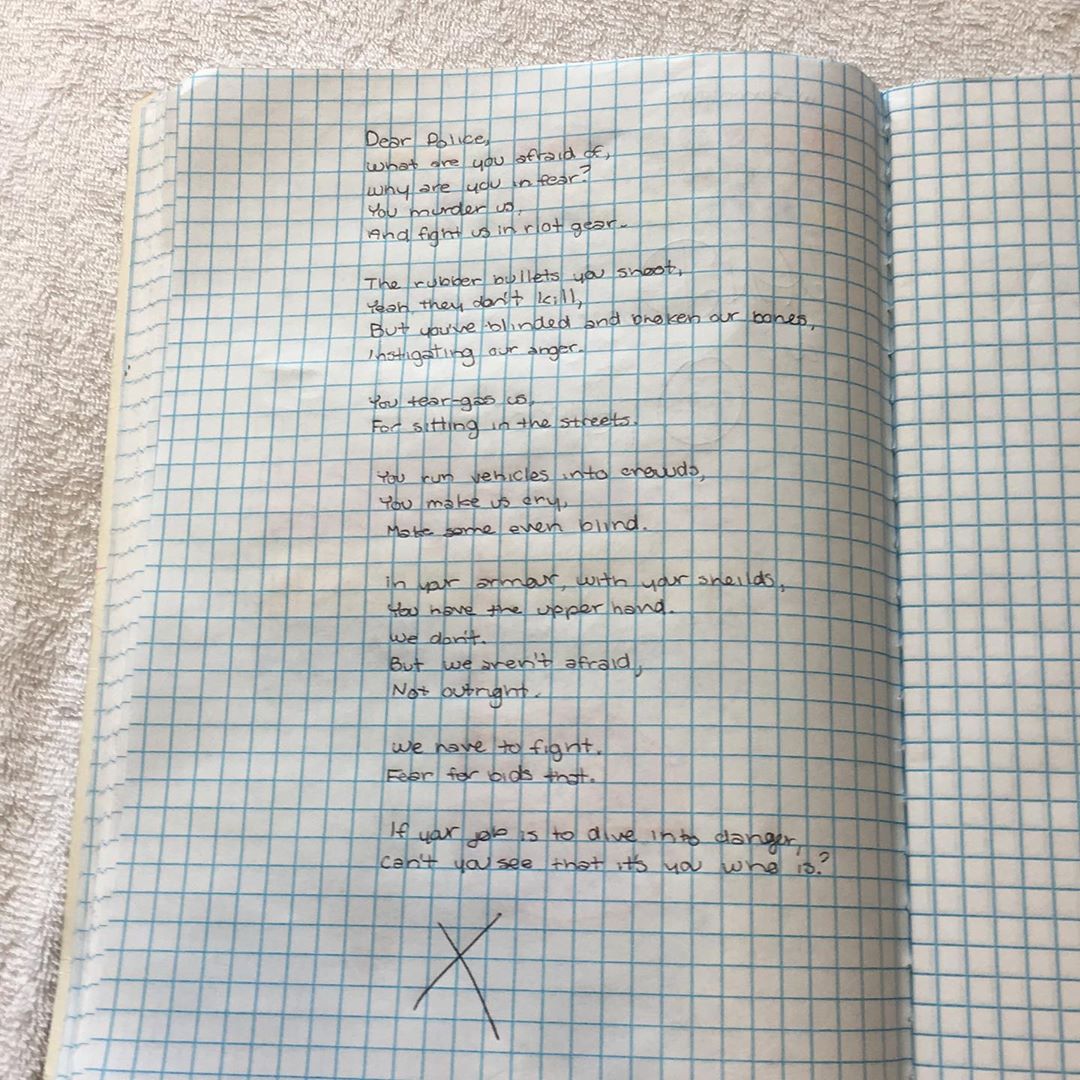 Dear Police,
What are you afraid of,
Why are you in fear?
You murder us,
And fight us in riot gear.
The rubber bullets you shoot,
Yeah they don't kill,
But you've blinded and broken our bones,
Instigating our anger.
You tear-gas us,
For sitting in the streets.
You run vehicles into crowds,
You make us cry,
Make some even blind.
In your armour, with your sheilds,
You have the upper hand.
We don't.
But we aren't afraid,
Not outright.
We have to fight.
Fear for bids that.
If your job is to dive into danger,
Can't you see that it's you who is?
X